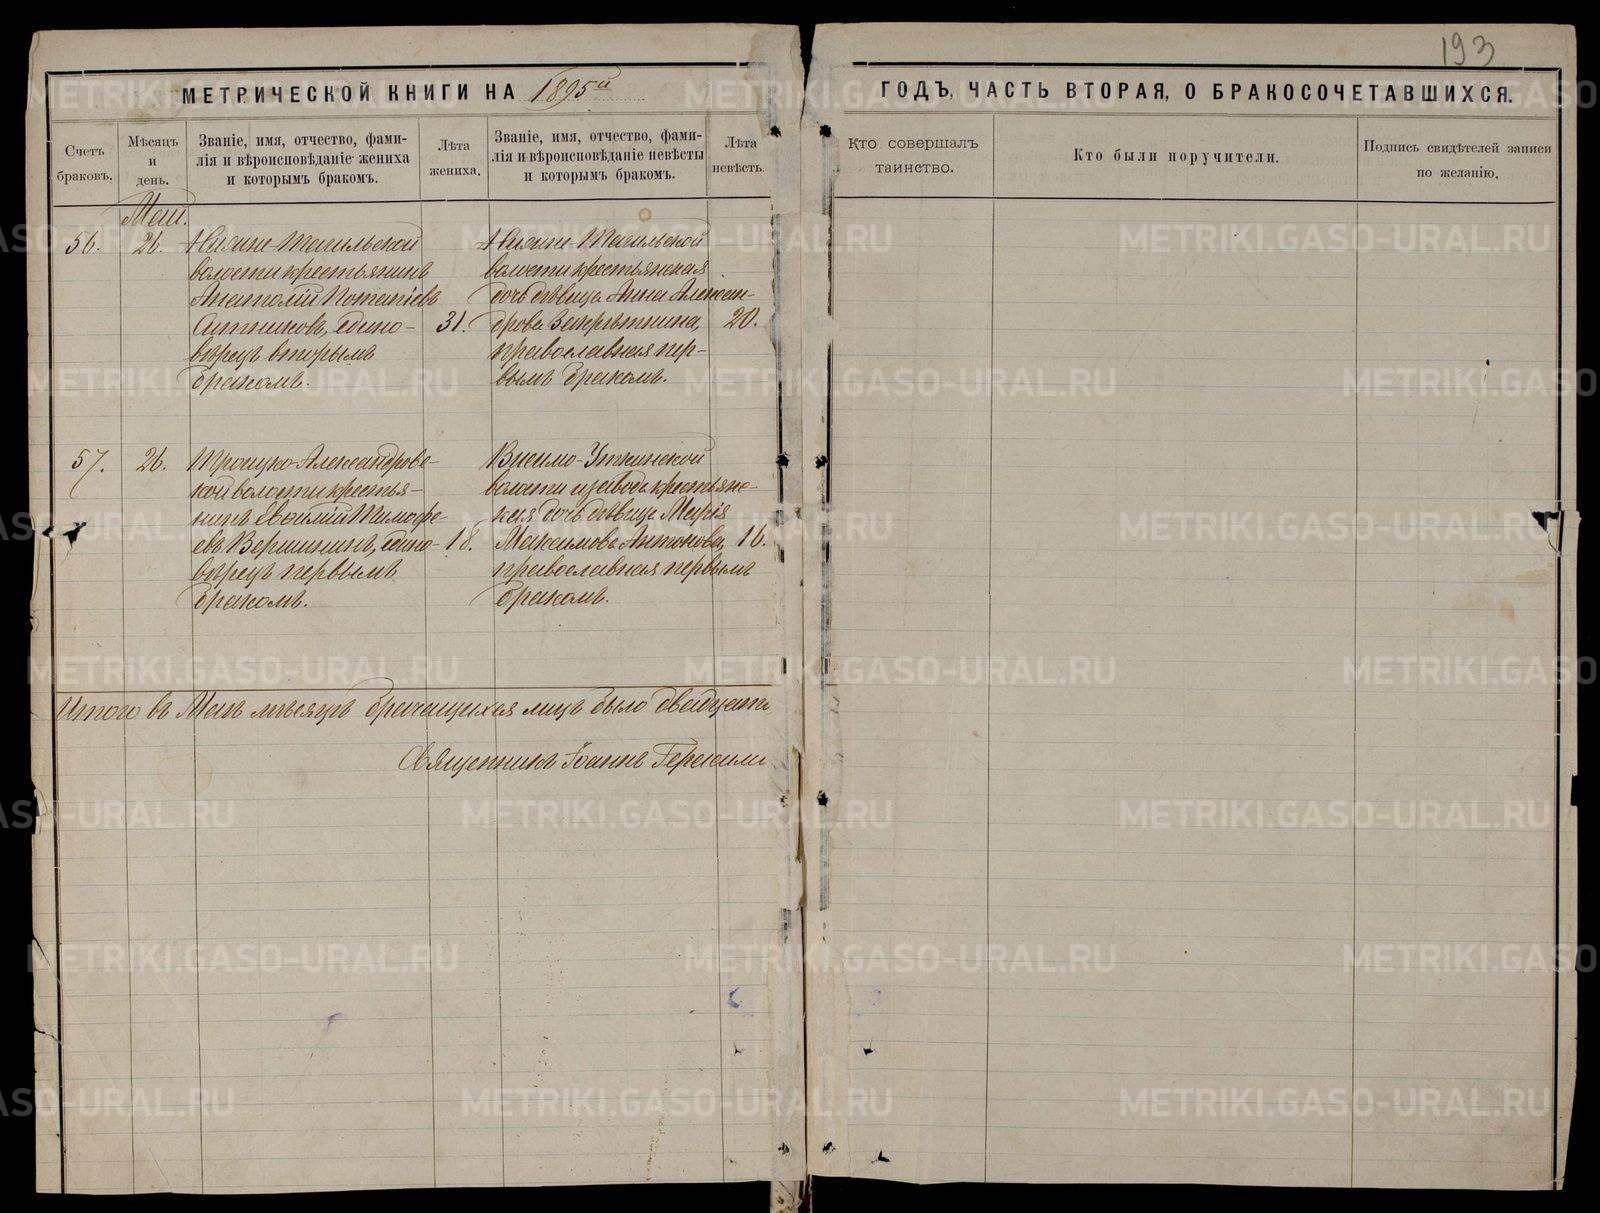 193
МЕТРИЧЕСКОЙ КНИГИ НА 1895й
ГОДЪ, ЧАСТЬ ВТОРАЯ, О БРАКОСОЧЕТАВШИХСЯ.
Счетъ
браковъ.
Мѣсяцъ
и
день.
Званіе, имя, отчество, фами-
лія и вѣроисповѣданіе жениха
и которымъ бракомъ.
Лѣта
жениха.
Званіе, имя, отчество, фами-
лія и вѣроисповѣданіе невѣсты
и которымъ бракомъ.
Лѣта
невѣсты.
Кто совершалъ
таинство.
Кто были поручители.
Подпись свидѣтелей записи
по желанію.
Маи.
56.
26.
Нижне-Тагильской
волости крестьянинъ
Анатолій Потапіевъ
Ситниковъ, едино-
вѣрецъ вторымъ
бракомъ.
31.
Нижне-Тагильской
волости крестьянская
дочь дѣвица Анна Алексан-
дрова
православная пер-
вымъ бракомъ.
20.
57.
26.
Троицко-Александровс-
кой волости крестья-
нинъ Василій Тимофе-
евъ Вершининъ, едино-
вѣрецъ первымъ
бракомъ.
18.
Висимо-Уткинской
волости и завода крестьянс-
кая дочь дѣвица Марія
Максимова Антонова,
православная первымъ
бракомъ.
16.
Итого въ Маѣ мѣсяцѣ брачащихся лицъ было двадцать
Священникъ Іоаннъ Герасимо
METRIKI.GASO-URAL.RU